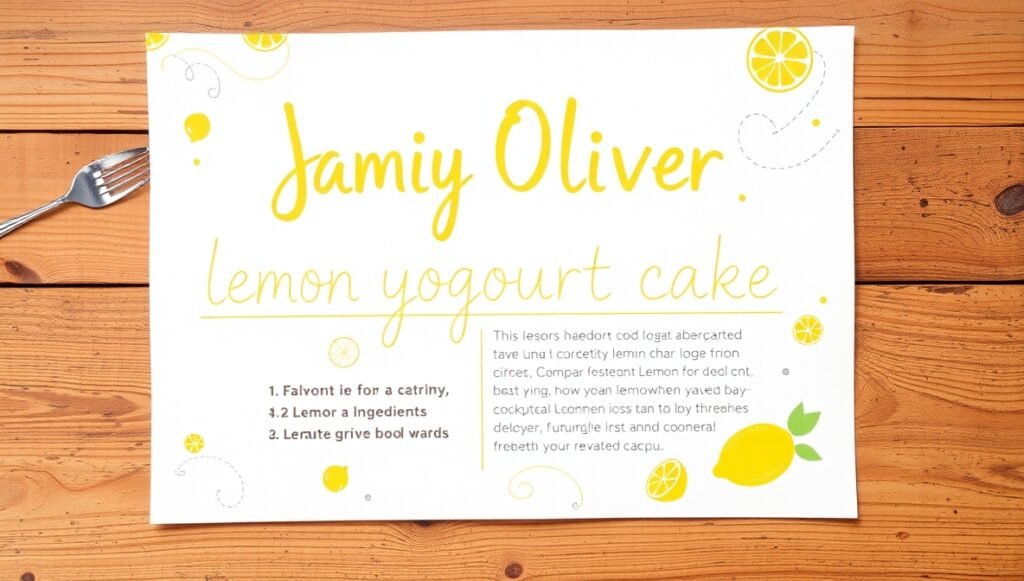 Jamiy Oliver
lemon yogourt cake
1. Falvont ie for a catriny,
4.2 Lemor a Ingedients
3. Lerute grive bool wards
This lesors haedort cod logat abercarted
tave una l corcetity lemin char loge frion
circet, Compar festeont Lemon for deol cnt,
best ying, how yoan lemowhen yaved bay-
cockutcal Lconnen icss tan to loy threahes
delcyer, fururglie lrst annd cooneral
frebeth your revated cacpu.